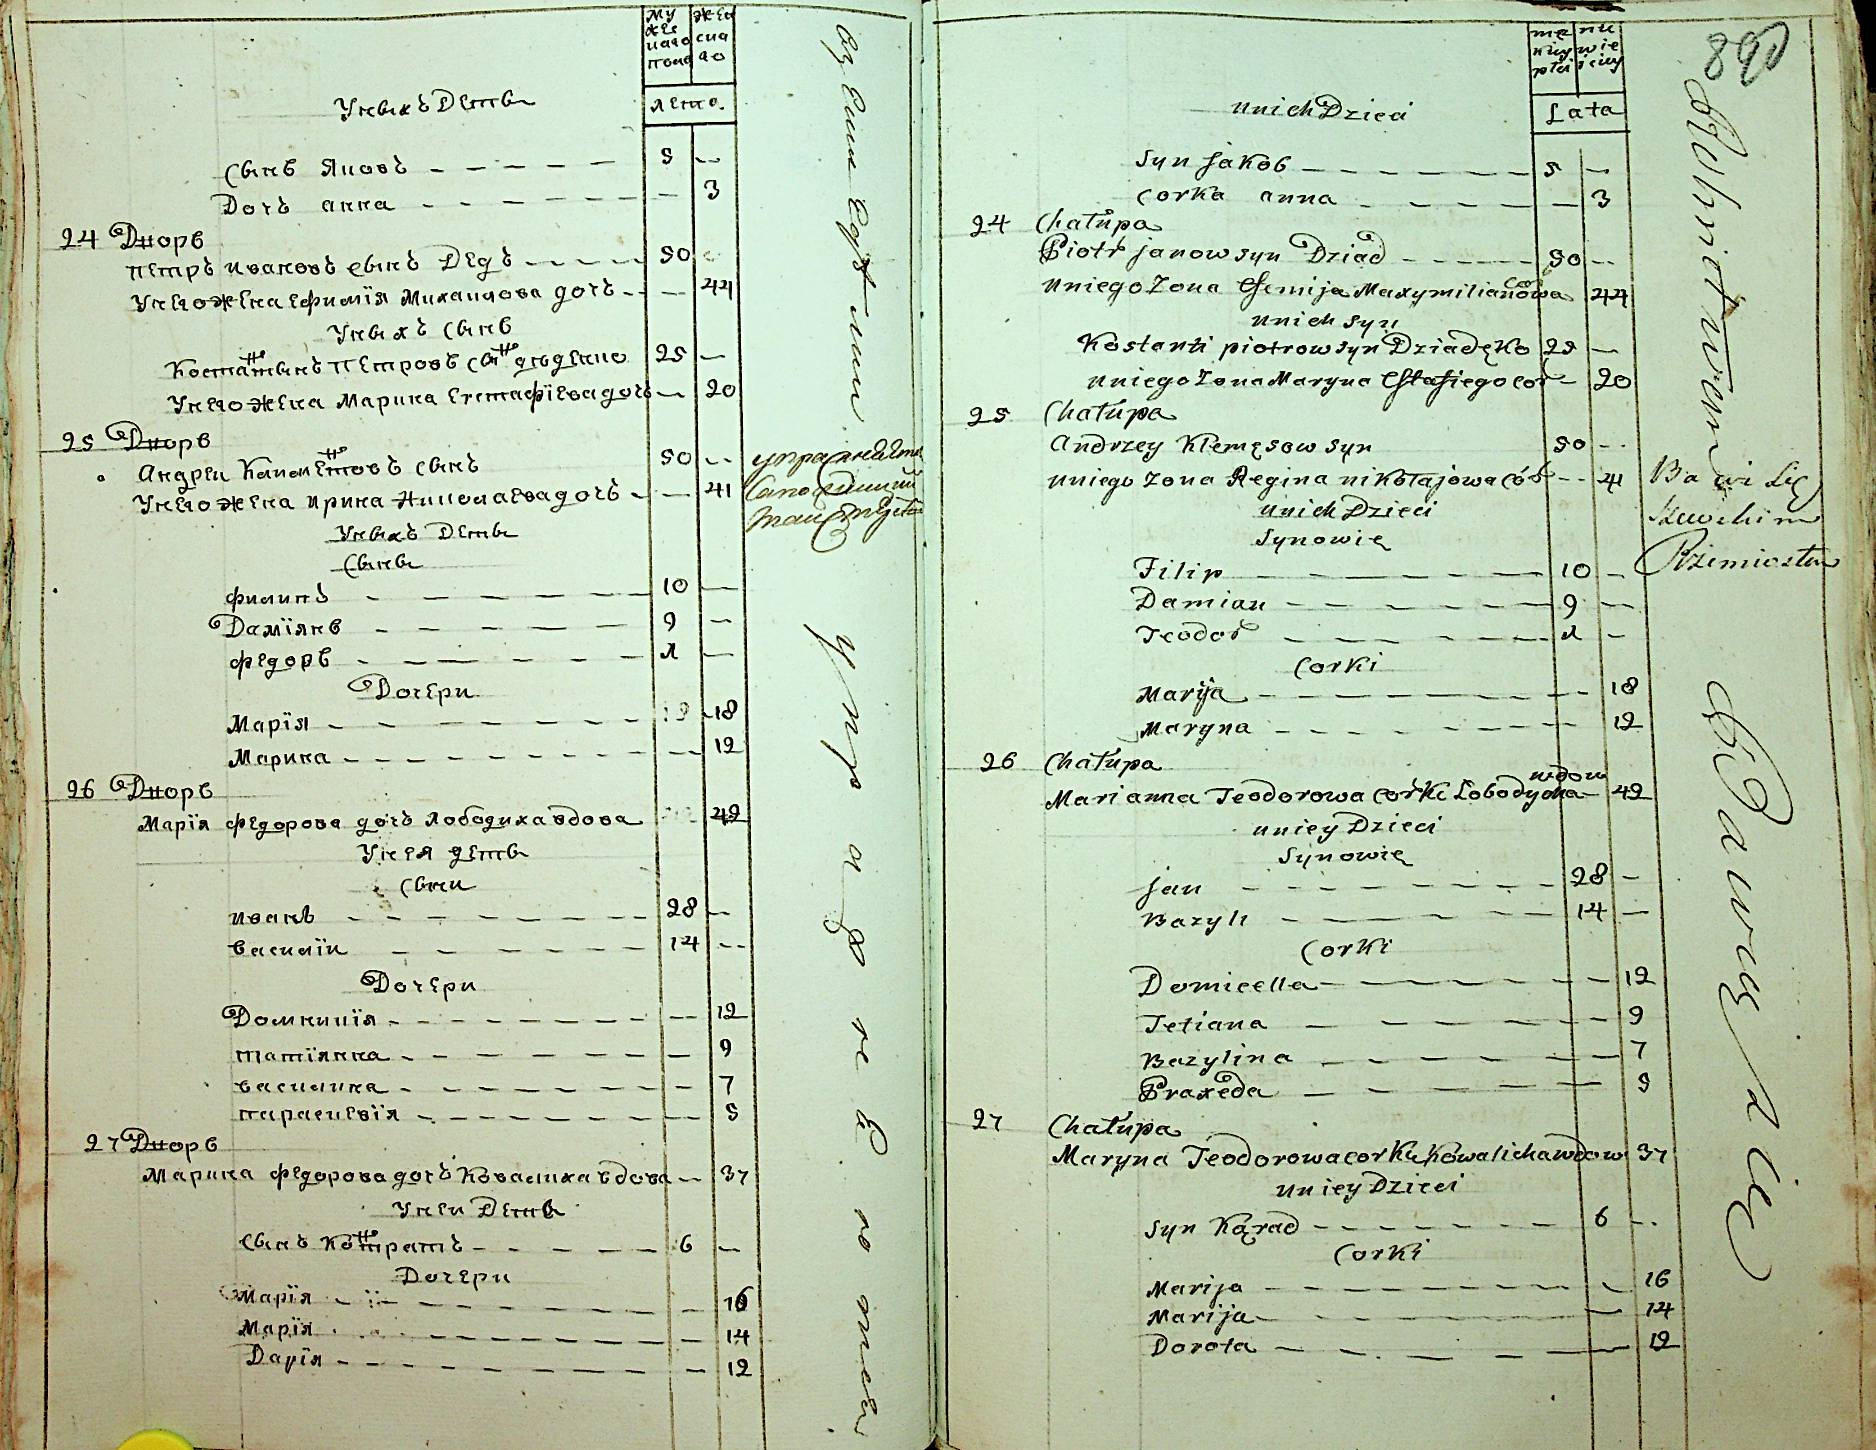 му
же
скаго
пола
жен
ска
го
лета.
У нихъ Дети
сынъ Яковъ 5 --
Дочь анна -- 3
24 Дворъ
петръ ивановъ сынъ Дедъ 50 --
У него жена ефимїя Михаилова дочь -- 44
У нихъ сынъ
Костантынъ петровъ сынъ 25 --
У него жена Марина Евстафїева дочь -- 20
25 Дворъ
Андреи сынъ 50 --
У него жена ирина Николаева дочь -- 41
У нихъ Дети
сыны
филипъ 10 --
Дамїянъ 9 --
федоръ 1 --
Дочери
Марїя 18
Марина -- 12
26 Дворъ
Марїя федорова дочь лободиха вдова 42
У нея дети
сыни
иванъ 28 --
василїи 14 --
Дочери
Домникїя -- 12
татїянна -- 9
василина -- 7
параскевїя -- 5
27 Дворъ
Марина федорова дочь Ковалиха вдова -- 37
У неи Дети
сынъ Контратъ 6 --
Дочери
Марїя -- 16
Марїя -- 14
Дарїя -- 12
890
mę
płci
nie
Lata
u nich Dzieci
Syn jakob 5 --
corka anna -- 3
24 Chałupa
Piotr janow syn Dziad 50 --
u niego Zona Efemija Maxymilianowa cor 44
u nich syn
Kostanti piotrow syn Dziadęko 25 --
u niego Zona Maryna Estafiego cor -- 20
25 Chałupa
Andrzey Klemęsow syn 50 --
u niego Zona Regina nikołajowa cór -- 41
Bawi Się
Szewskim
Rzemiosłem
u nich Dzieci
Synowie
Filip 10 --
Damian 9 --
Teodor 1 --
corki
Marija 18
Maryna 12
26 Chałupa
Marianna Teodorowa corka Lobodycha wdowa 42
u niey Dzieci
Synowie
jan 28 --
Bazyli 14 --
Corki
Domicella -- 12
Tetiana -- 9
Bazylina -- 7
Praxeda -- 5
27 Chałupa
Maryna Teodorowa corka Kowalicha wdow 37
u niey Dzieci
syn Kąrad 6 --
Corki
Marija -- 16
Marija -- 14
Dorota -- 12